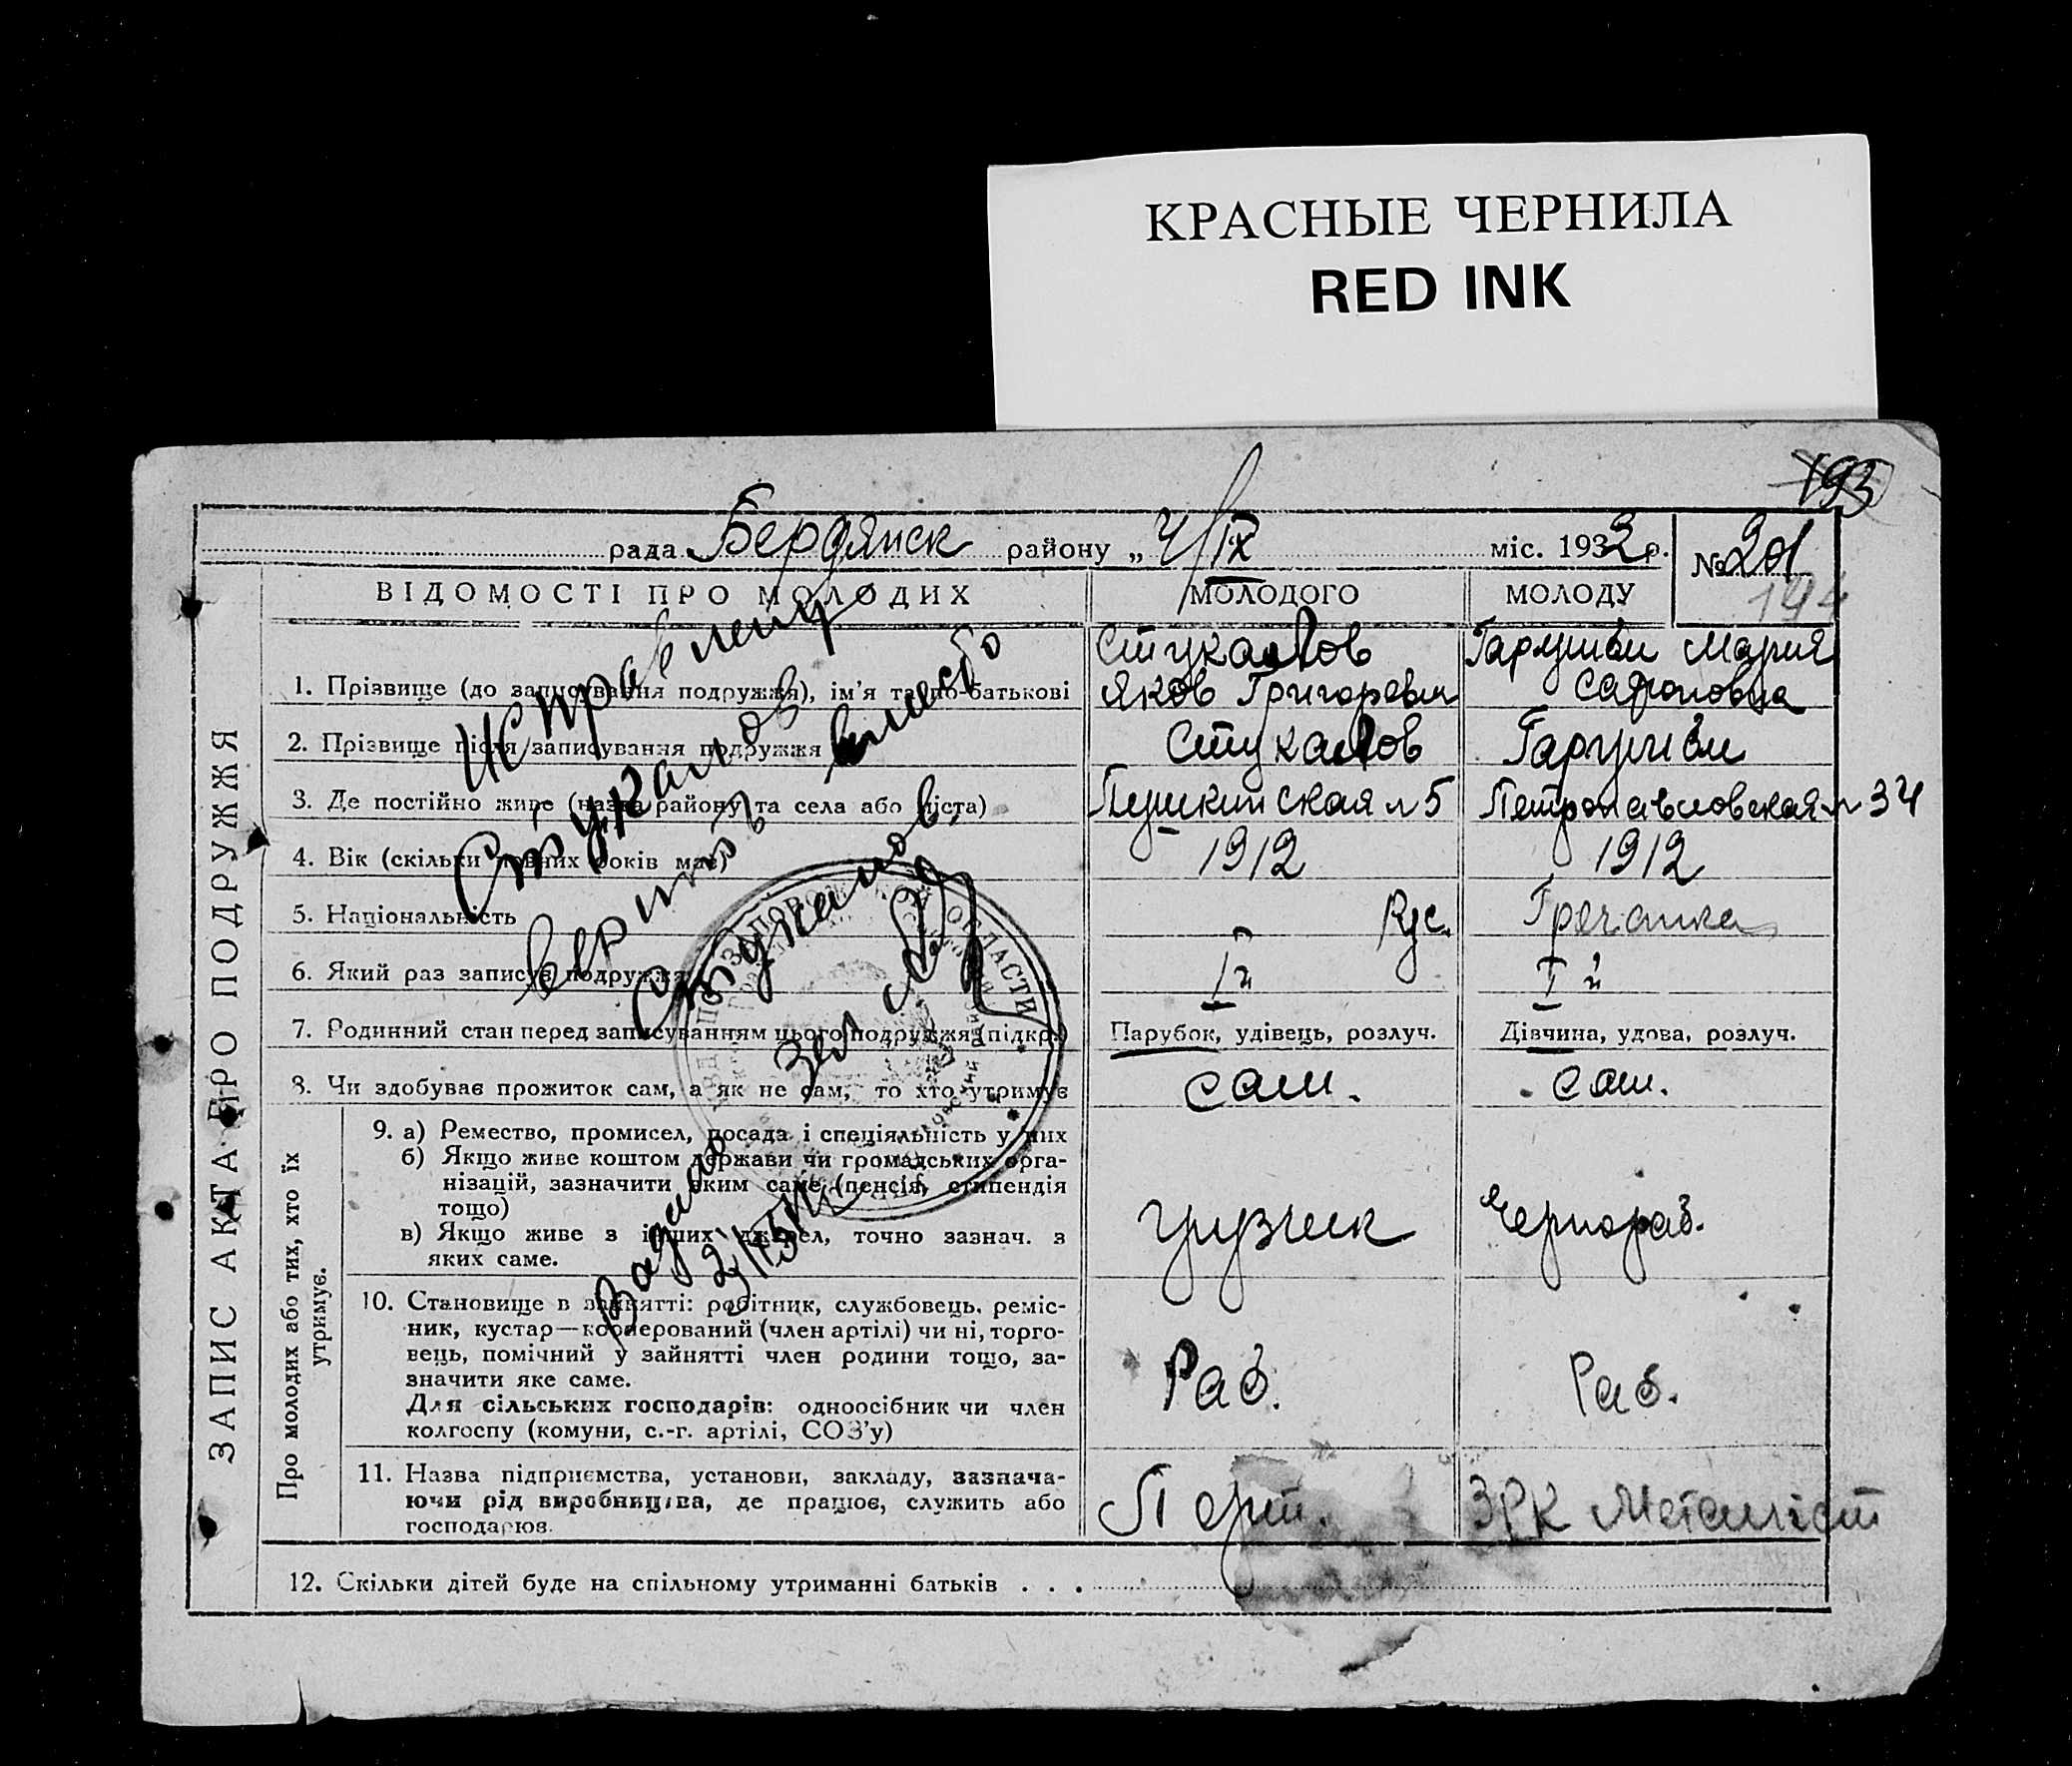 КРАСНЫЕ ЧЕРНИЛА
RED INK
193
рада Бердянск району „ 4/IX міс. 1932 р. № 201
194
ЗАПИС АКТА ПРО ПОДРУЖЖЯ
ВІДОМОСТІ ПРО МОЛОДИХ МОЛОДОГО МОЛОДУ
1. Прізвище (до записування подружжя), ім'я та по-батькові Стукалов Яков Григоревич Мария Сафоновна
2. Прізвище після записування подружжя Стукалов
3. Де постійно живе (назва району та села або міста) Пушкинская 5 Петропавловская 34
4. Вік (скільки повних років має) 1912 1912
5. Національність Рус. Гречанка
6. Який раз записує подружжя Iй Iй
7. Родинний стан перед записуванням цього подружжя (підкр.) Парубок, удівець, розлуч. Дівчина, удова, розлуч.
8. Чи здобуває прожиток сам, а як не сам, то хто утримує сам. сам.
Про молодих або тих, хто їх утримує.
9. а) Ремество, промисел, посада і спеціяльність у них
б) Якщо живе коштом держави чи громадських орга-
нізацій, зазначити яким саме (пенсія, стипендія
тощо)
в) Якщо живе з інших джерел, точно зазнач. з
яких саме.
грузчик Чернораб.
10. Становище в занятті: робітник, службовець, реміс-
ник, кустар—кооперований (член артілі) чи ні, торго-
вець, помічний у зайнятті член родини тощо, за-
значити яке саме.
Для сільських господарів: одноосібник чи член
колгоспу (комуни, с.-г. артілі, СОЗ'у)
Раб. Раб.
11. Назва підприємства, установи, закладу, зазнача-
ючи рід виробництва, де працює, служить або
господарює.
Порт. ЗРК Металіст
12. Скільки дітей буде на спільному утриманні батьків . . .
Исправлену
Стукалов
верить вместо
Стукалов.
ОБЛАСТИ